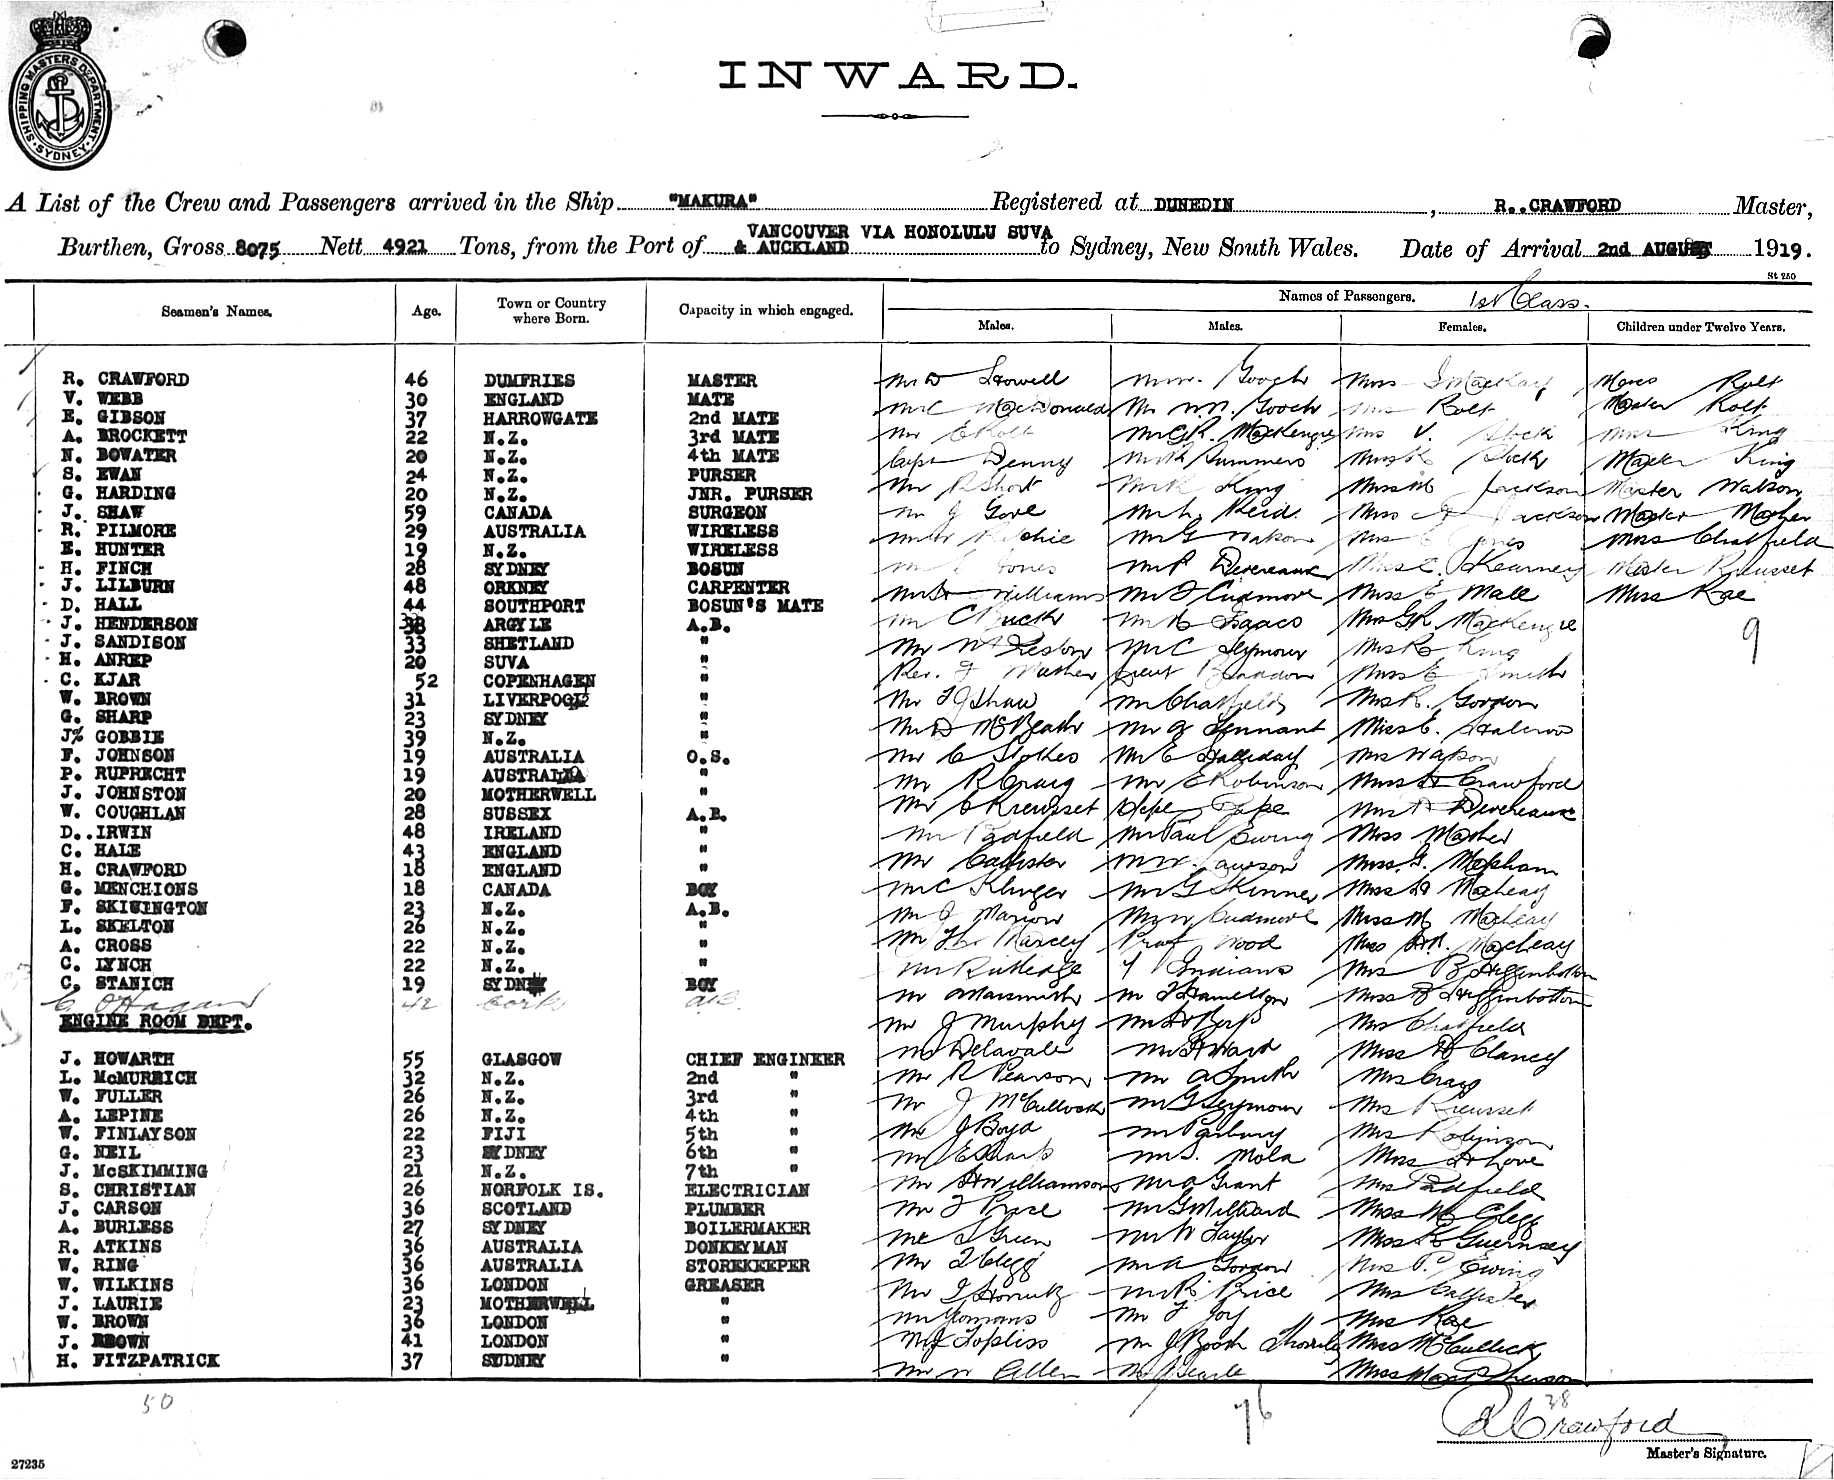 SHIPPING MASTERS DEPARTMENT SYDNEY
INWARD.
A List of the Crew and Passengers arrived in the Ship "MAKURA" Registered at DUNEDIN, R..CRAWFORD Master,
Burthen, Gross 8075 Nett 4921 Tons, from the Port of VANCOUVER VIA HONOLULU SUVA & AUCKLAND to Sydney, New South Wales. Date of Arrival 2nd AUGUST 1919.
St 250
Seamen's Names. Age. Town or Country where Born. Capacity in which engaged. Names of Passengers. 1st Class.
Males. Males. Females. Children under Twelve Years.
R. CRAWFORD 46 DUMFRIES MASTER
V. WEBB 30 ENGLAND MATE
E. GIBSON 37 HARROWGATE 2nd MATE
A. BROCKETT 22 N.Z. 3rd MATE
N. BOWATER 20 N.Z. 4th MATE
S. EWAN 24 N.Z. PURSER
G. HARDING 20 N.Z. JNR. PURSER
J. SHAW 59 CANADA SURGEON
R. PILMORE 29 AUSTRALIA WIRELESS
E. HUNTER 19 N.Z. WIRELESS
H. FINCH 28 SYDNEY BOSUN
J. LILBURN 48 ORKNEY CARPENTER
D. HALL 44 SOUTHPORT BOSUN'S MATE
J. HENDERSON 38 ARGYLE A.B.
J. SANDISON 33 SHETLAND "
H. ANREP 20 SUVA "
C. KJAR 52 COPENHAGEN "
W. BROWN 31 LIVERPOOL "
G. SHARP 23 SYDNEY "
J% GOBBIE 39 N.Z. "
F. JOHNSON 19 AUSTRALIA O.S.
P. RUPRECHT 19 AUSTRALIA "
J. JOHNSTON 20 MOTHERWELL "
W. COUGHLAN 28 SUSSEX A.B.
D..IRWIN 48 IRELAND "
C. HALE 43 ENGLAND "
H. CRAWFORD 18 ENGLAND "
G. MENCHIONS 18 CANADA BOY
F. SKIWINGTON 23 N.Z. A.B.
L. SKELTON 26 N.Z. "
A. CROSS 22 N.Z. "
C. LYNCH 22 N.Z. "
C. STANICH 19 SYDNEY BOY
C O'Hagan 42 Cork AB
ENGINE ROOM DEPT.
J. HOWARTH 55 GLASGOW CHIEF ENGINEER
L. McMURRICH 32 N.Z. 2nd "
W. FULLER 26 N.Z. 3rd "
A. LEPINE 26 N.Z. 4th "
W. FINLAYSON 22 FIJI 5th "
G. NEIL 23 SYDNEY 6th "
J. McSKIMMING 21 N.Z. 7th "
S. CHRISTIAN 26 NORFOLK IS. ELECTRICIAN
J. CARSON 36 SCOTLAND PLUMBER
A. BURLESS 27 SYDNEY BOILERMAKER
R. ATKINS 36 AUSTRALIA DONKEYMAN
W. RING 36 AUSTRALIA STOREKEEPER
W. WILKINS 36 LONDON GREASER
J. LAURIE 23 MOTHERWELL "
W. BROWN 36 LONDON "
J. BROWN 41 LONDON "
H. FITZPATRICK 37 SYDNEY "
50
Mr D Howell
Mr C MacDonald
Mr E Rolt
Capt Denny
Mr R Short
Mr J Gove
Mr W Ritchie
Mr C Jones
Mr H Williams
Mr C Buck
Mr W Preston
Rev. F Mather
Mr T G Shaw
Mr D McBeath
Mr C Stokes
Mr R Craig
Mr C Kreusset
Mr Padfield
Mr Callister
Mr C Kluger
Mr J Marion
Mr Rutledge
Mr J Murphy
Mr Delavale
Mr R Pearson
Mr J McCulloch
Mr J Boyd
Mr H Williamson
Mr F Price
Mr S Green
Mr T Clegg
Mr Yomans
Mr J Topliss
Mr W Allen
Mr W. Gooch
Mr W.N. Gooch
Mr G R. MacKenzie
Mr R Summers
Mr R King
Mr L Reid.
Mr G Watson
Mr P Devereaux
Mr F Cudmore
Mr H Isaacs
Mr C Seymour
Mr Chatfield
Mr G Tennant
Mr E Halliday
Mr E Robinson
Mr Paul Ewing
Mr W. Lawson
Mr G Skinner
Mr W Cudmore
Prof Wood
7 Indians
Mr F Hamelton
Mr H Ward
Mr A Smith
Mr G Seymour
Mr Parbury
Mr S. Mola
Mr A Grant
Mr G Millward
Mr W Taylor
Mr A Gordon
Mr R Price
Mr F Joy
Mr J Searle
76
Miss J MacKay
Mrs Rolt
Mrs V. Stock
Miss K Stock
Miss M Jackson
Miss A Jackson
Mrs C Jones
Miss C. Kearney
Miss E Male
Mrs G R. MacKenzie
Mrs R King
Miss E Smith
Mrs R. Gordon
Miss E. Halcrow
Mrs Watson
Miss H Crawford
Mrs H Devereaux
Miss Mather
Miss F. Mapham
Miss D Macleay
Miss M Macleay
Miss H N. Macleay
Mrs B Higginbotton
Miss B Higginbotton
Mrs Chatfield
Miss H Clancy
Mrs Craig
Mrs Kreusset
Mrs Robinson
Miss H Love
Mrs Padfield
Miss M Clegg
Miss E Guernsey
Mrs P. Ewing
Mrs Callister
Mrs Rae
Miss McCullock
Miss MacPherson
38
Miss Rolt
Master Rolt
Miss King
Master King
Master Watson
Master Mather
Miss Chatfield
Master Kreusset
Miss Rae
9
R Crawford
Master's Signature.
27235